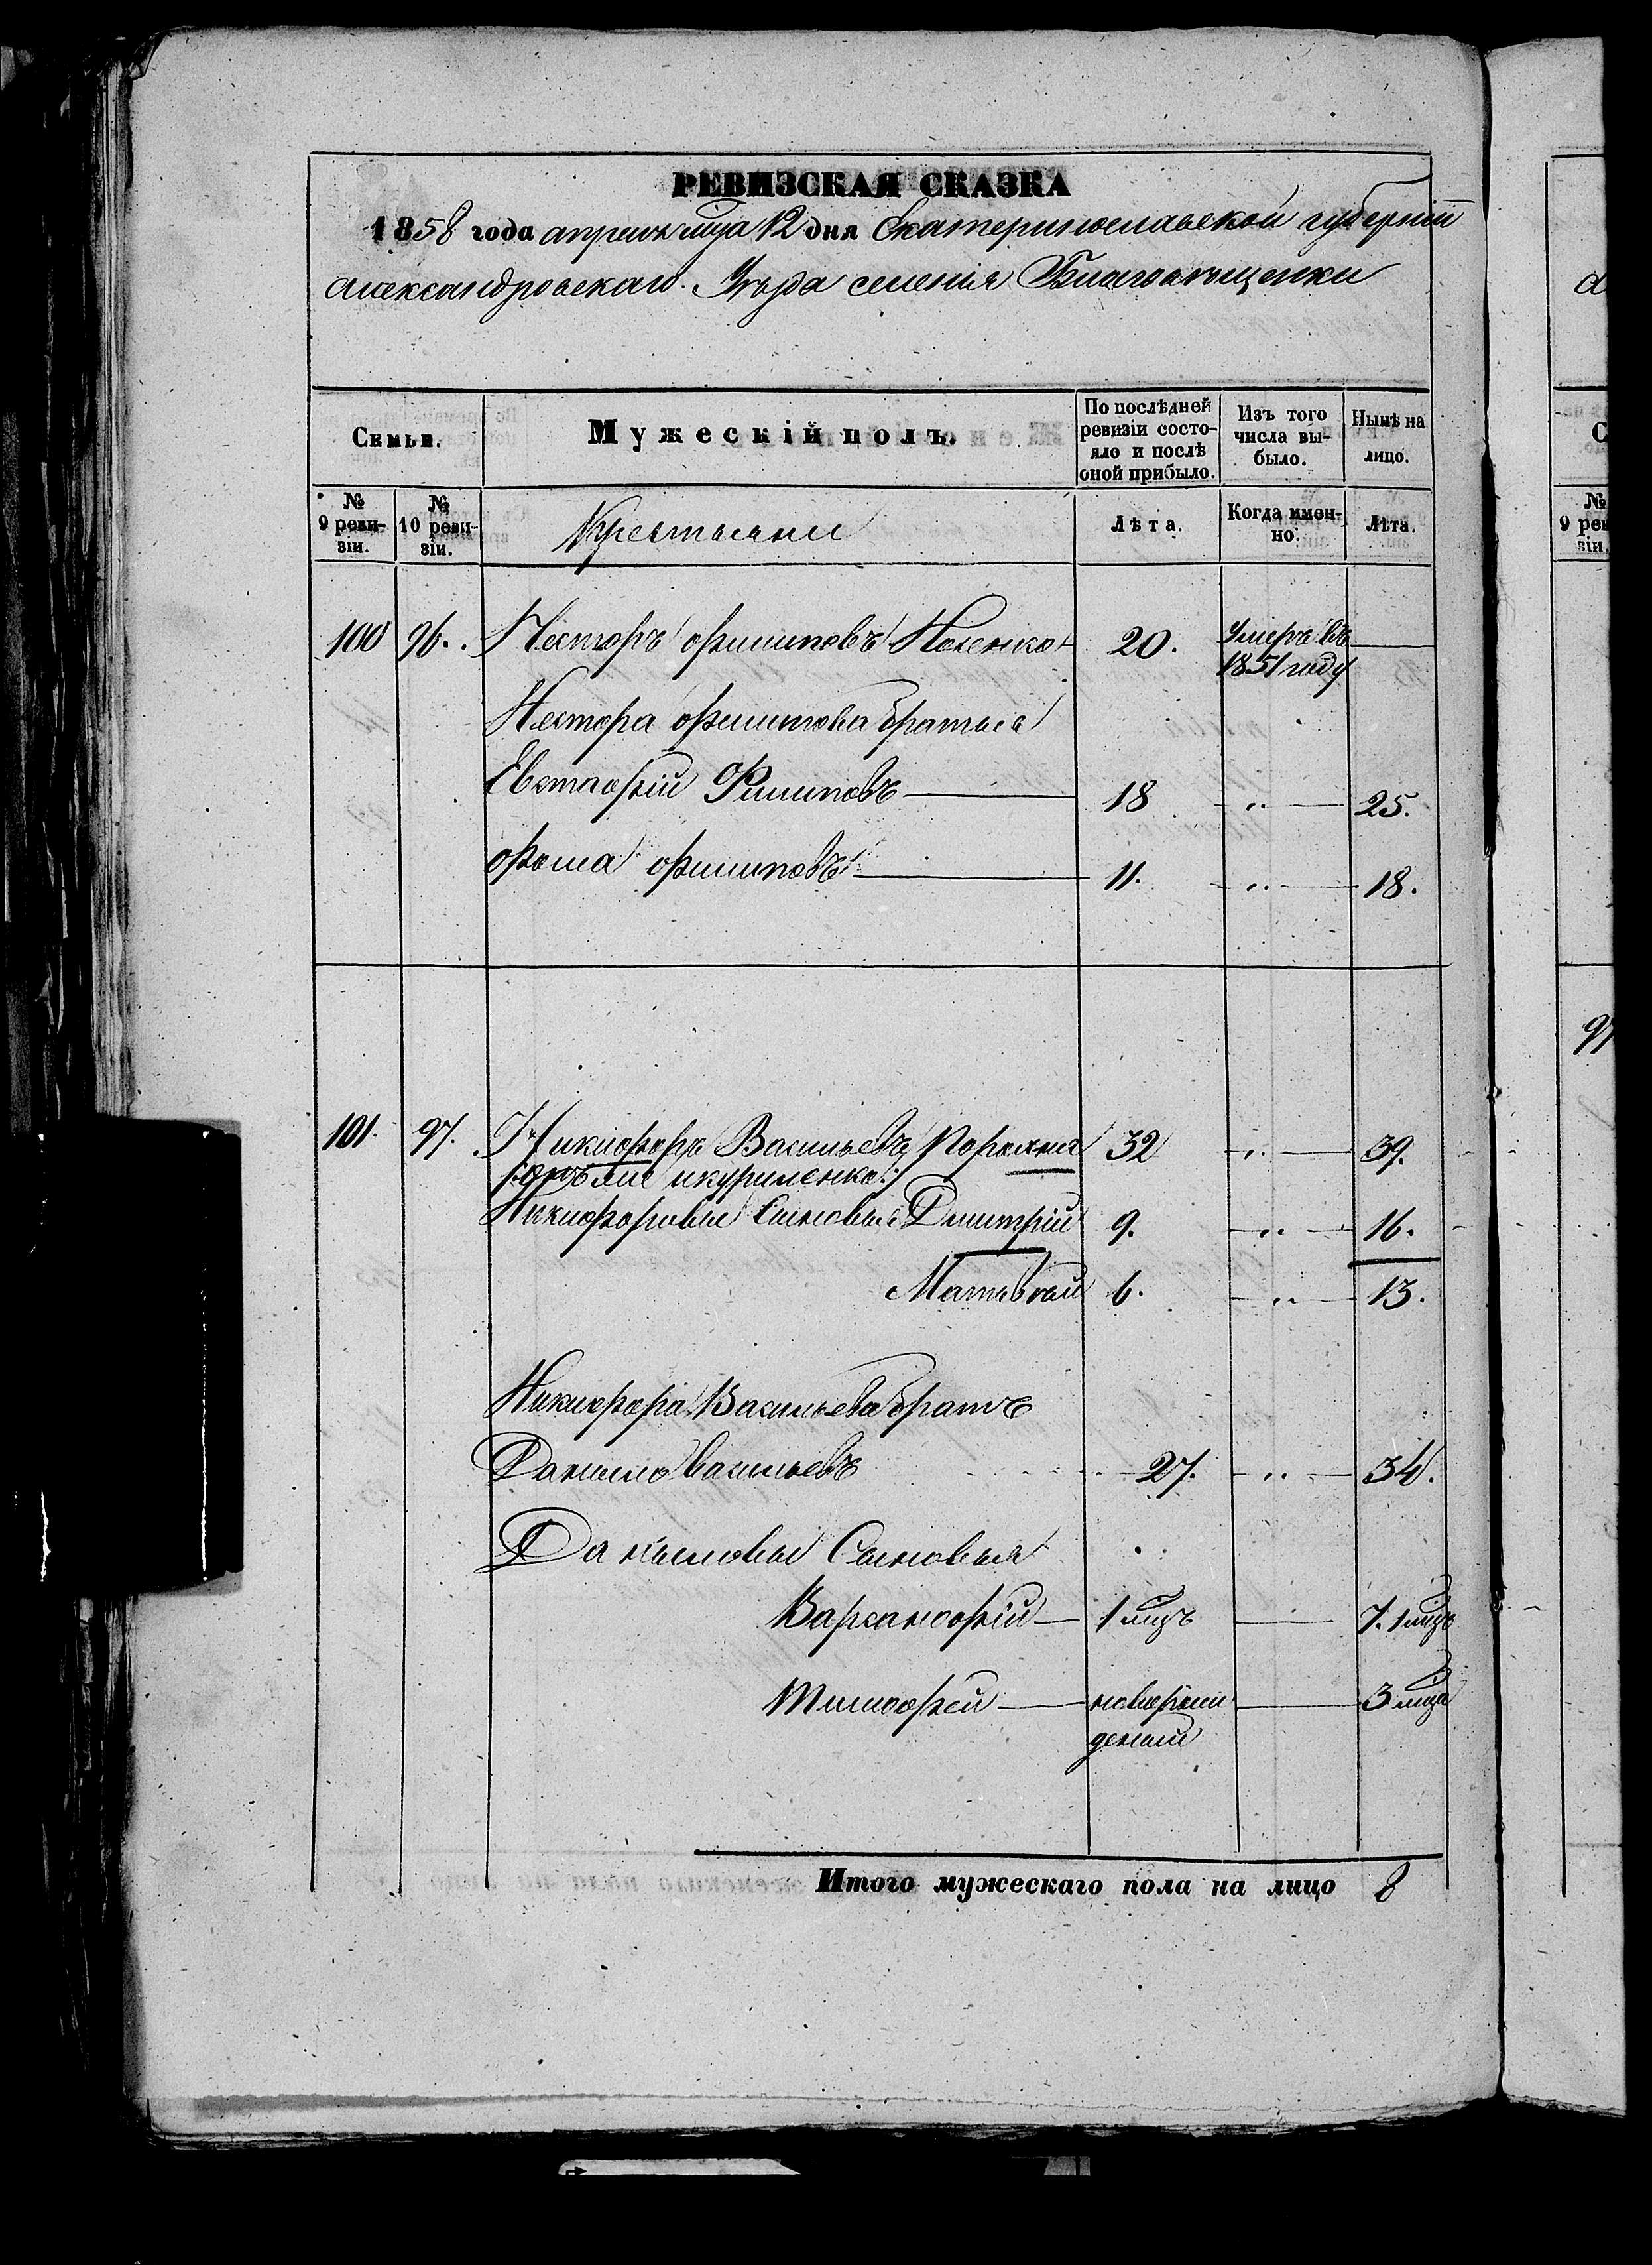 РЕВИЗСКАЯ СКАЗКА
1858 года апреля мца 12 дня Екатеринославской губерніи
Александровскаго Уѣзда селенія Благовѣщенки
Семьи.
Мужескій полъ.
По послѣдней ревизіи состояло и послѣ оной прибыло.
Изъ того числа выбыло.
Нынѣ на лицо.
№ 9 ревизіи.
№ 10 ревизіи.
Крестьяни
Лѣта.
Когда именно.
Лѣта.
100 96. Несторъ Филиповъ 20. Умеръ въ 1851 году
Нестора Филипова братья
Евстафій Филиповъ 18 " 25.
Фома Филиповъ 11. " 18.
101. 97. Никифоръ Васильевъ 32 " 39.
Никифоровы Сыновья Дмитрій 9. " 16.
Матвѣй 6. " 13.
Никифора Васильева братъ
Данило Васильевъ 27. " 34.
Даниловы Сыновья
Варсанофій 1 мцъ 7. 1 мцъ
Тимофей новорожденый 3 мца
Итого мужескаго пола на лицо 8
№ 9 рев
зіи.
97